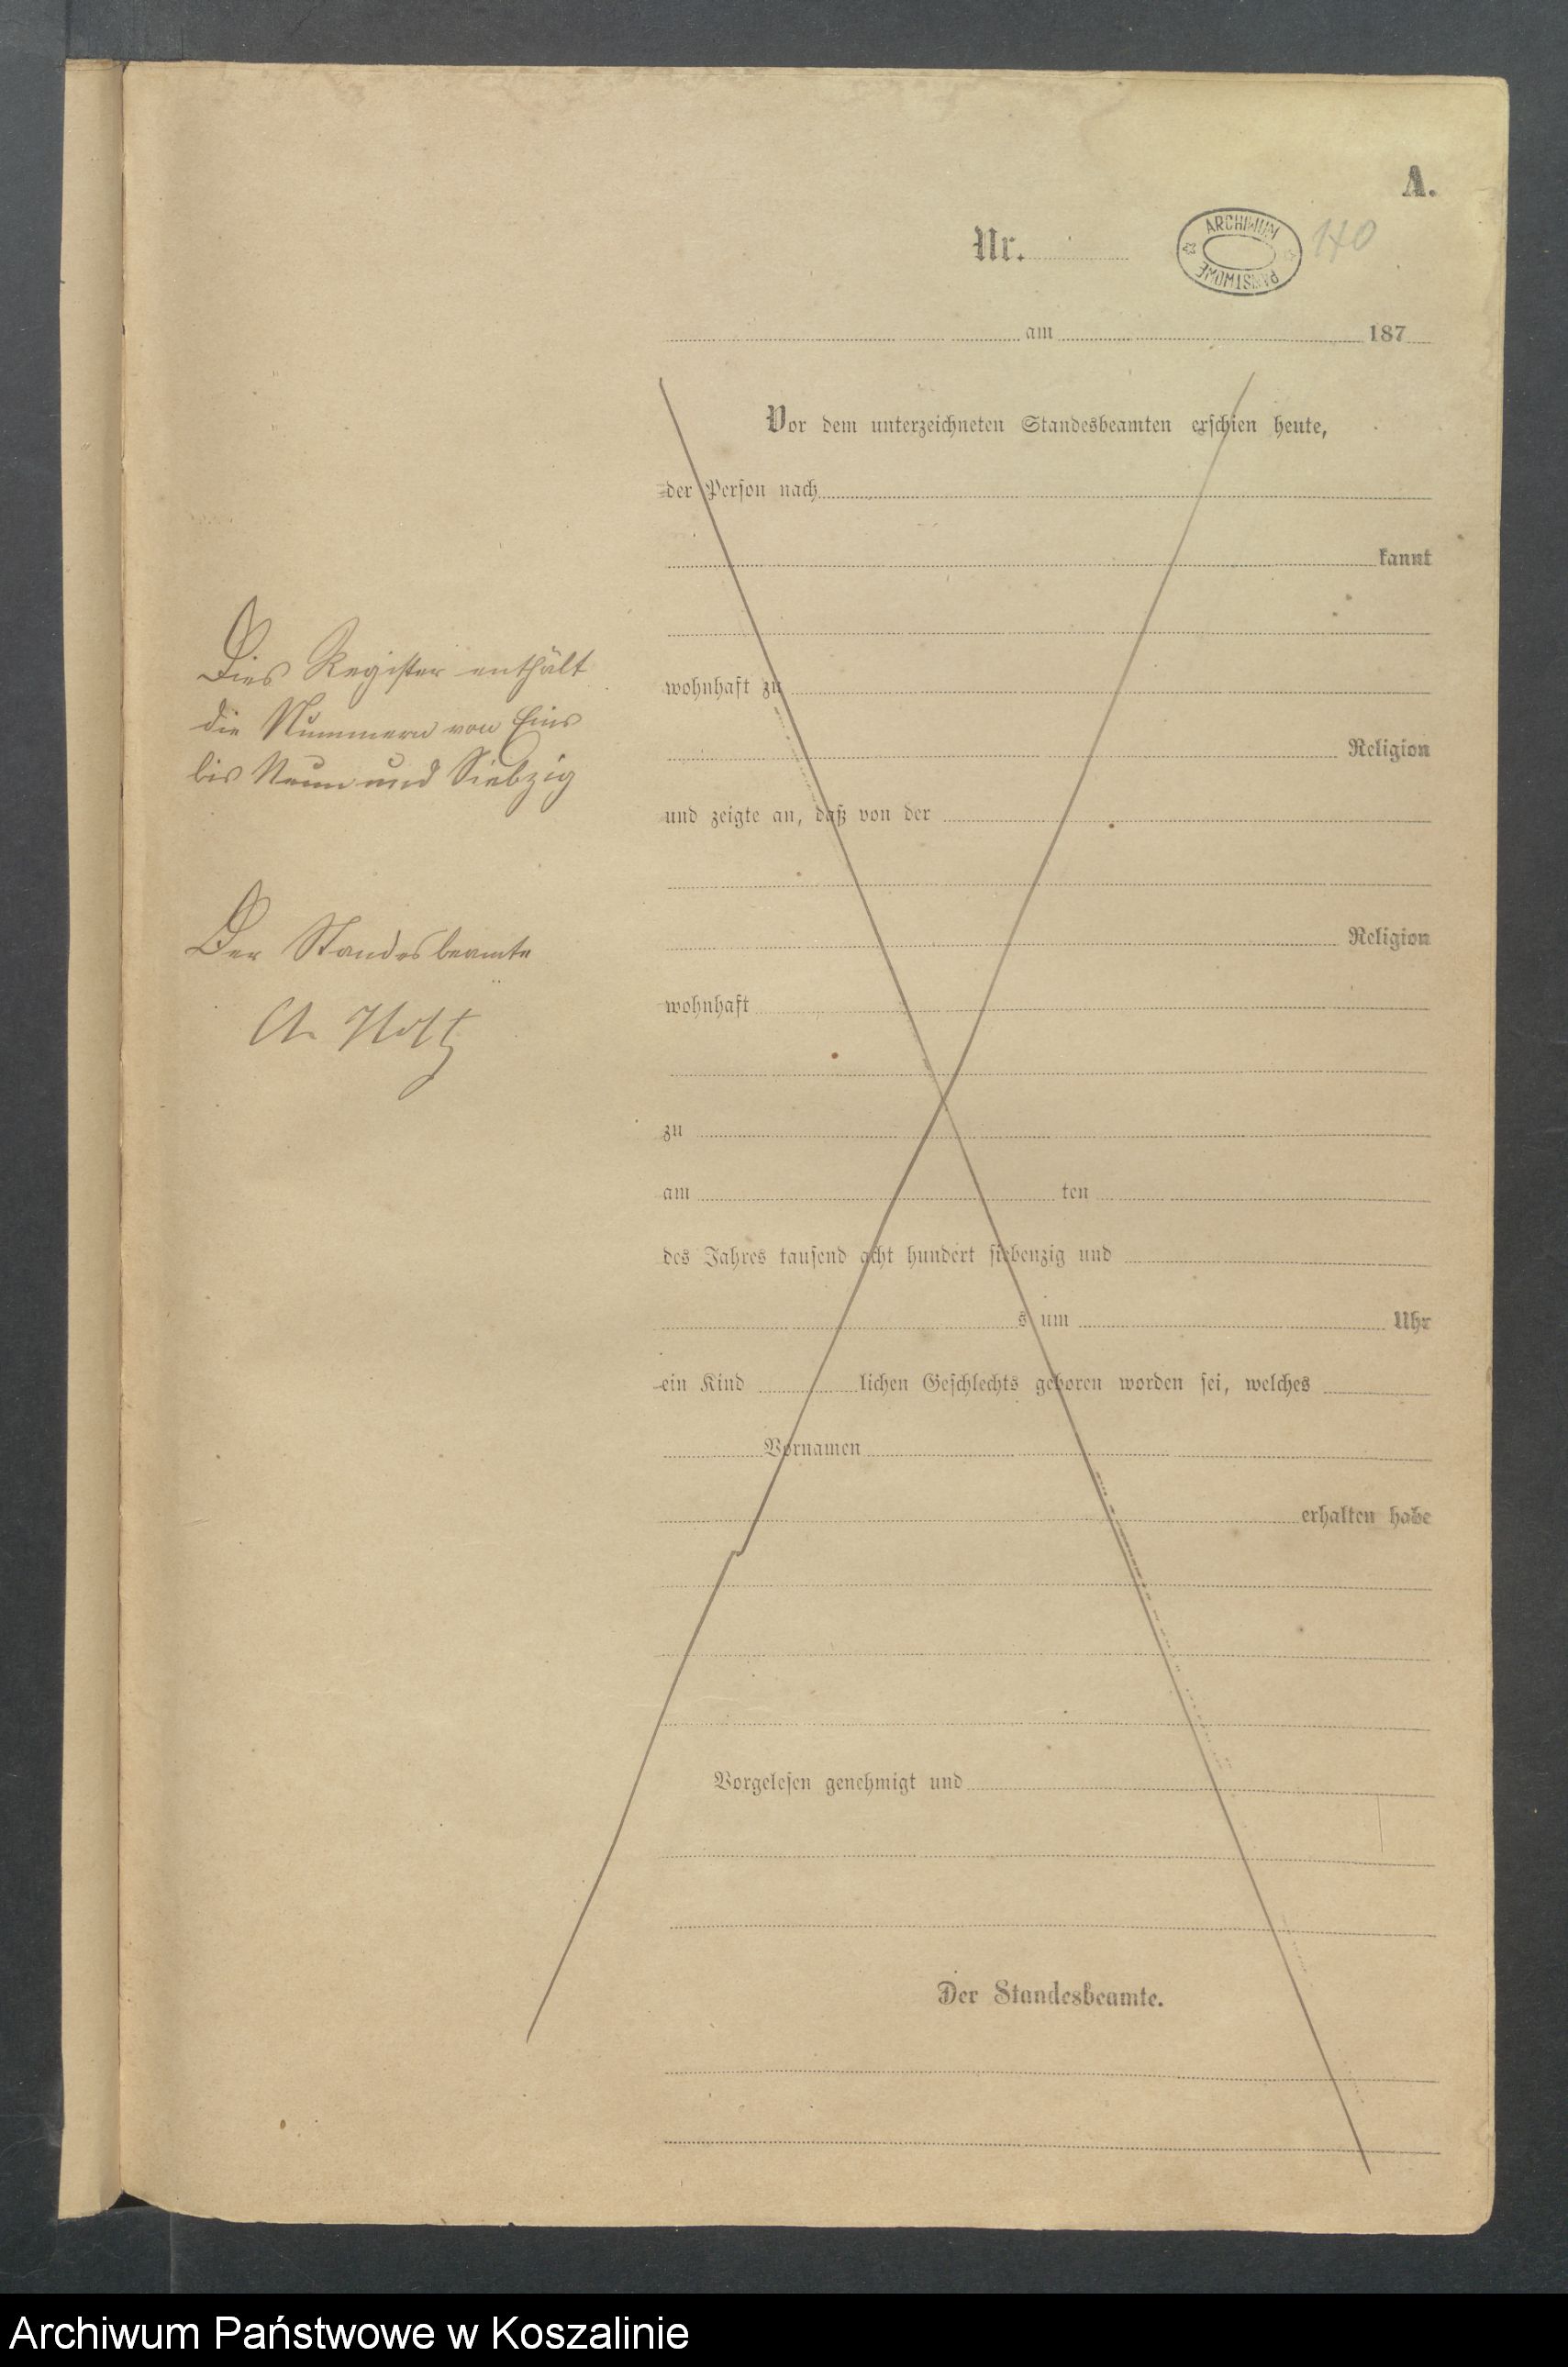 A.
Nr.
ARCHIWUM PAŃSTWOWE
140
am 187
Vor dem unterzeichneten Standesbeamten erschien heute,
der Person nach
kannt
wohnhaft zu
Religion
und zeigte an, daß von der
Religion
wohnhaft
zu
am ten
des Jahres tausend acht hundert siebenzig und
s um Uhr
ein Kind lichen Geschlechts geboren worden sei, welches
Vornamen
erhalten habe
Vorgelesen genehmigt und
Der Standesbeamte.
Dies Register enthält
die Nummern von Eins
bis Neun und Siebzig
Der Standesbeamte
Holtz
Archiwum Państwowe w Koszalinie